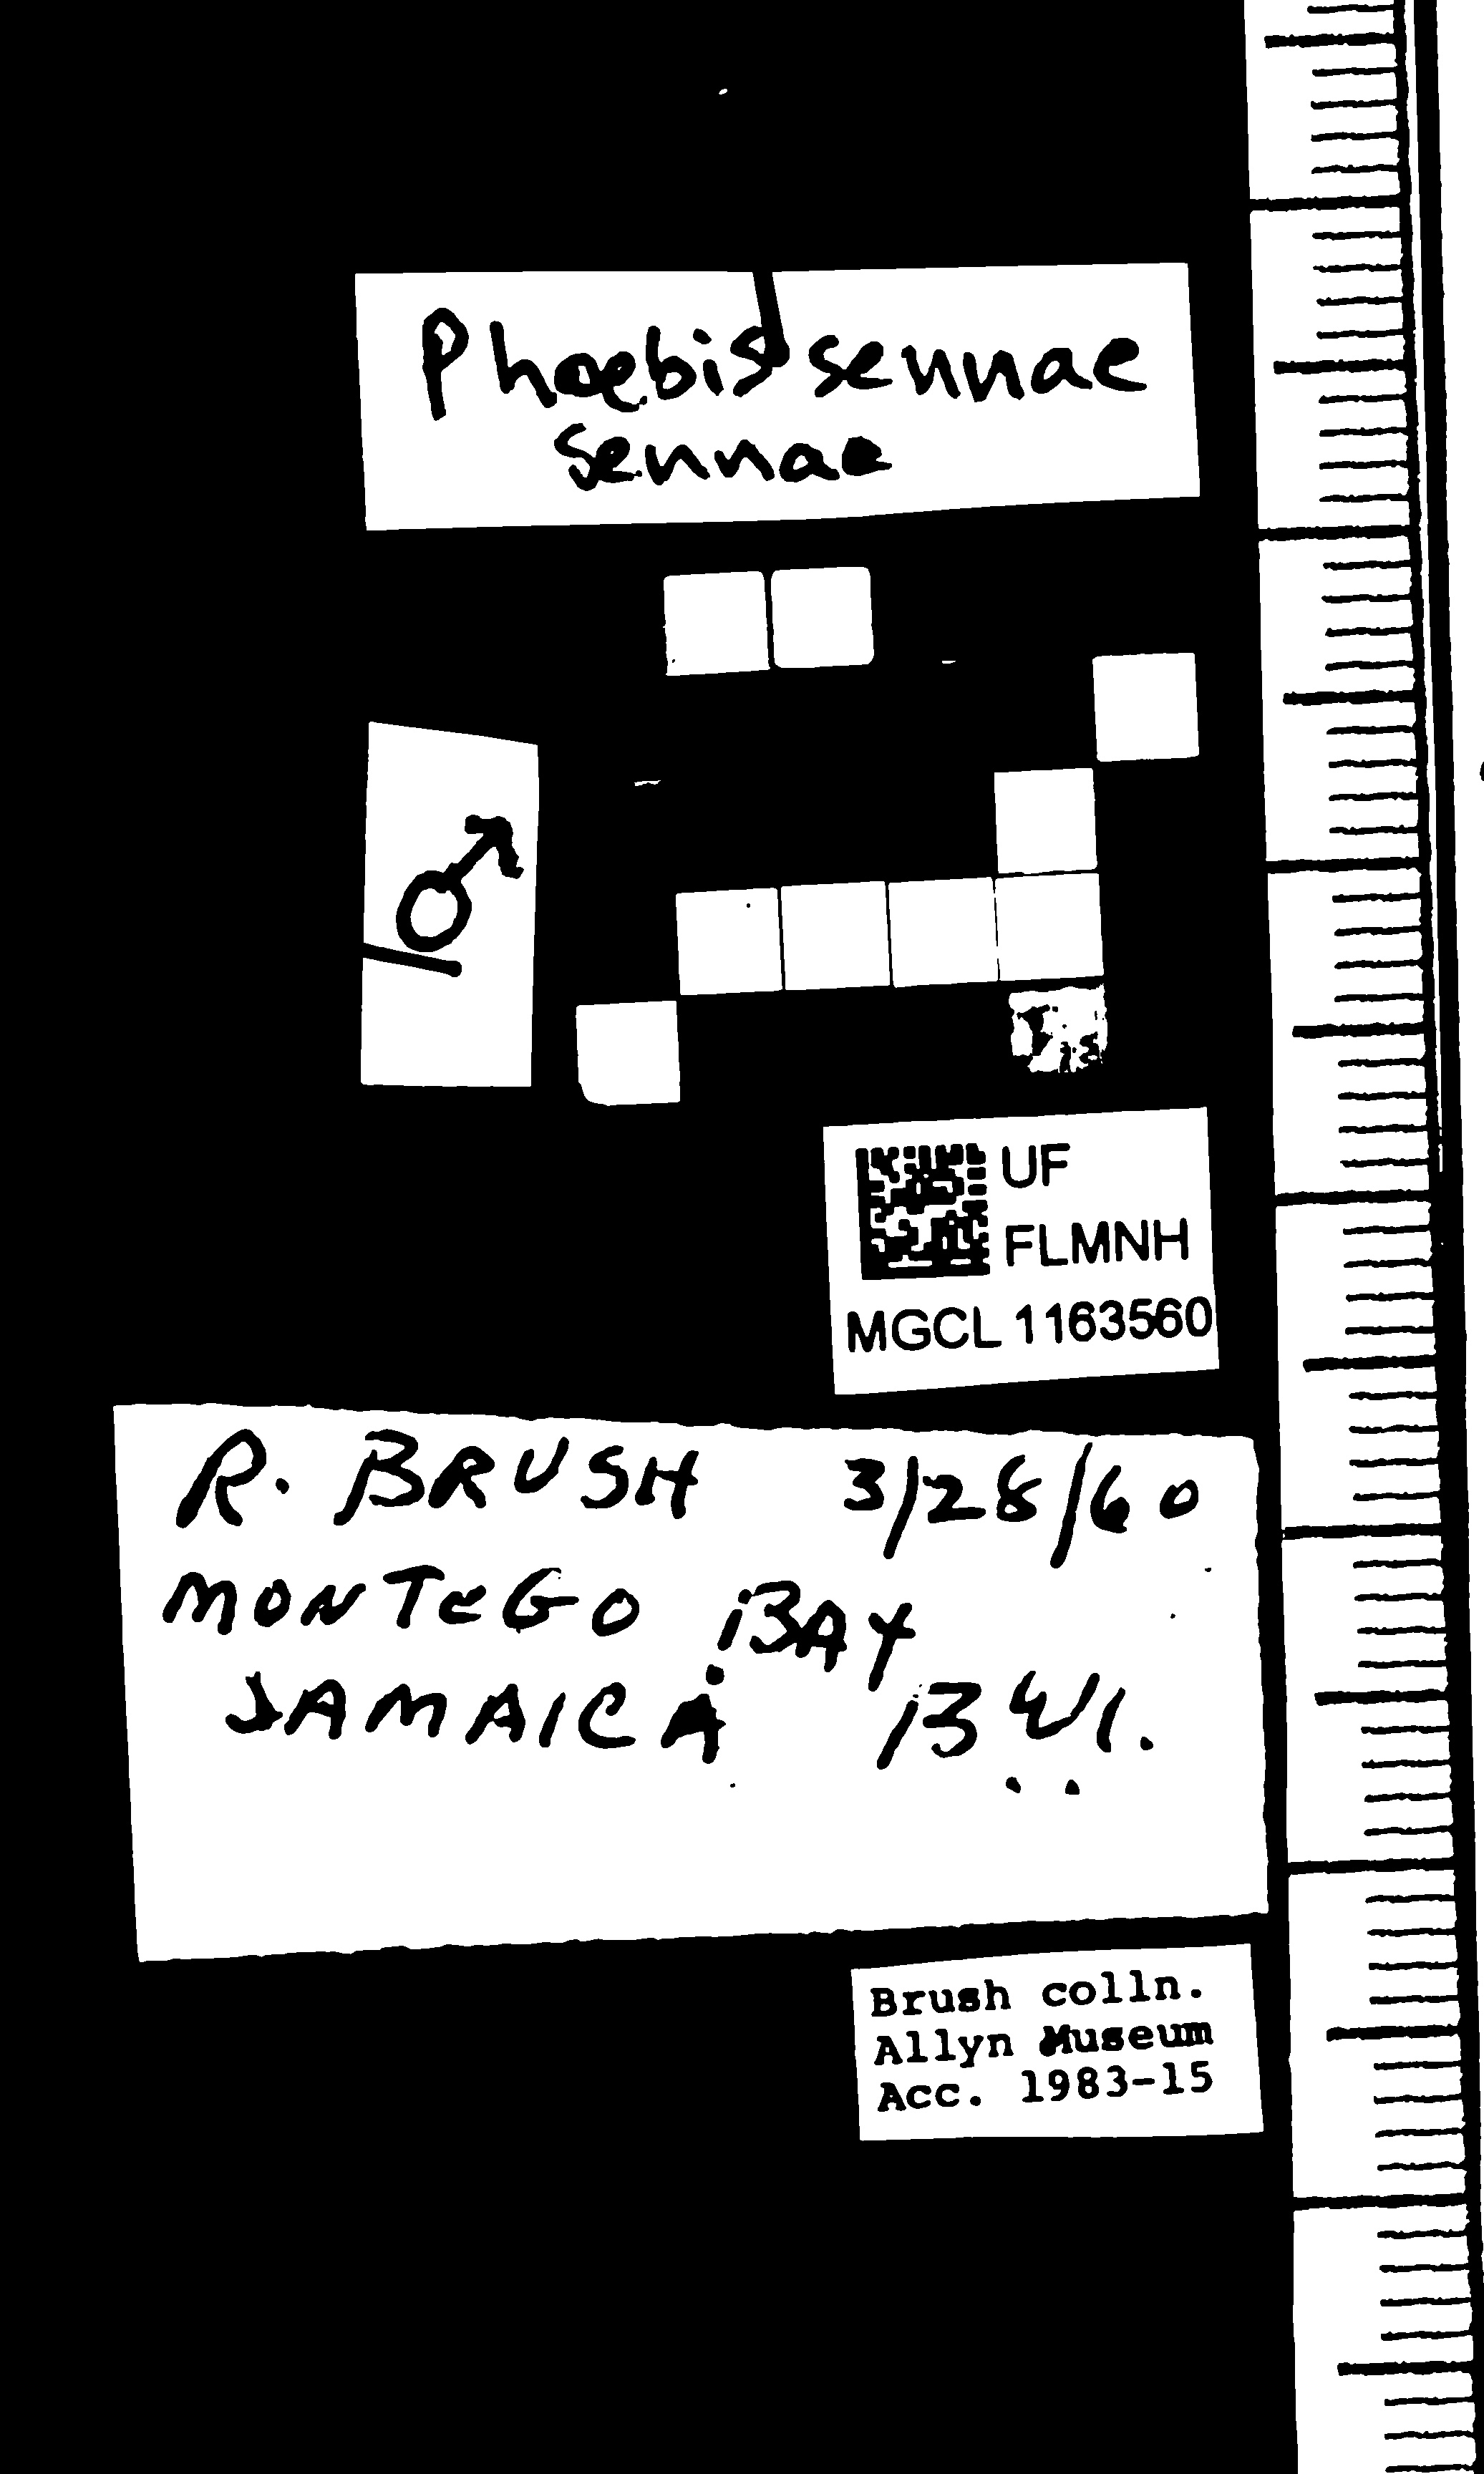 Phoebis sennae
sennae
♂
UF
FLMNH
MGCL 1163560
R. BRUSH 3/28/60
MONTEGO BAY
JAMAICA
Brush colln.
Allyn Museum
Acc. 1983-15